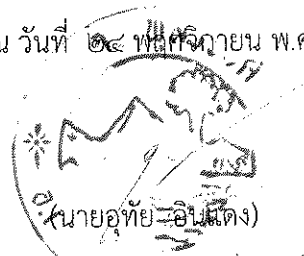 น วันที่ ๒๔ พฤศจิกายน พ.ศ
(นายอุทัย อินแดง)